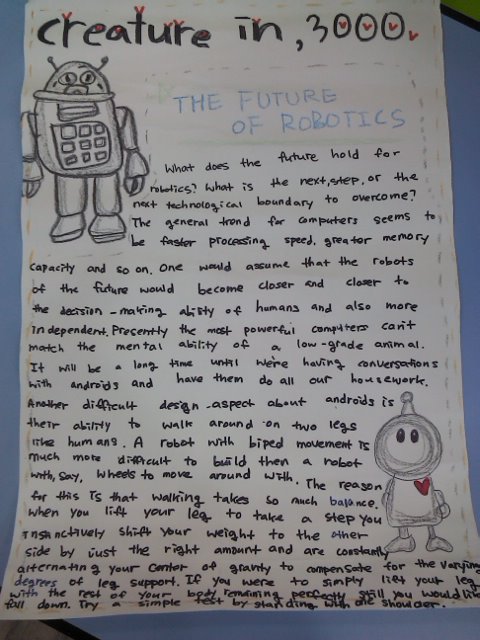 creature in, 3000.
THE FUTURE
OF ROBOTICS
What does the future hold for
robotics? What is the next, step, or the
next technological boundary to overcome?
The general trend for computers seems to
be faster processing speed, greater memory
capacity and so on. One would assume that the robots
of the future would become closer and closer to
the decision -making ability of humans and also more
independent. Presently the most powerful computers can't
match the mental ability of a low-grade animal.
It will be a long time until we're having conversations
with androids and have them do all our housework.
Another difficult design -aspect about androids is
their ability to walk around on two legs
like humans. A robot with biped movement is
much more difficult to build then a robot
with, say, wheels to move around with. The reason
for this is that walking takes so much balance.
when you lift your leg to take a step you
instinctively shift your weight to the other
side by just the right amount and are constantly
alternating your center of gravity to compensate for the varying
degrees of leg support. If you were to simply lift your leg
with the rest of your body remaining perfectly still you would like
fall down. Try a simple test by standing with one shoulder.